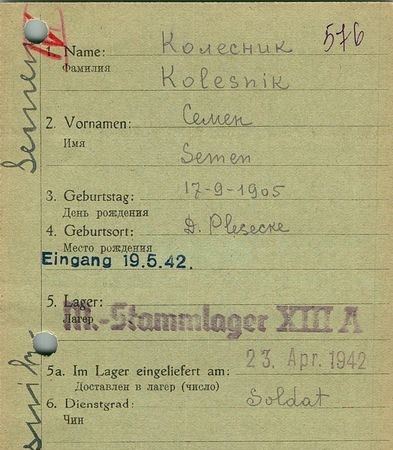 576
1. Name: Колесник
Фамилия Kolesnik
2. Vornamen: Семен
Имя
Semen
3. Geburtstag: 17-9-1905
День рождения
4. Geburtsort: D. Plesecke
Место рождения
Eingang 19.5.42.
5. Lager: M.-Stammlager XIII A
Лагер
5a. Im Lager eingeliefert am: 23. Apr. 1942
Доставлен в лагер (число)
6. Dienstgrad: Soldat
Чин
Semen